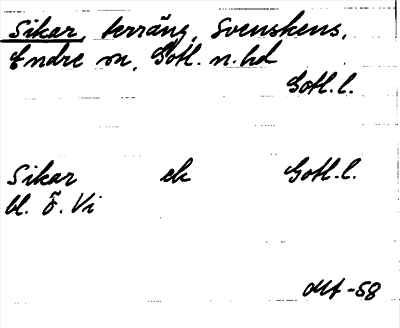 Sikar, terräng, Svenskens,
Endre sn, Gotl. n. hd
Gotl. l.
Sikar ek Gotl. l.
bl. f. Vi
-58